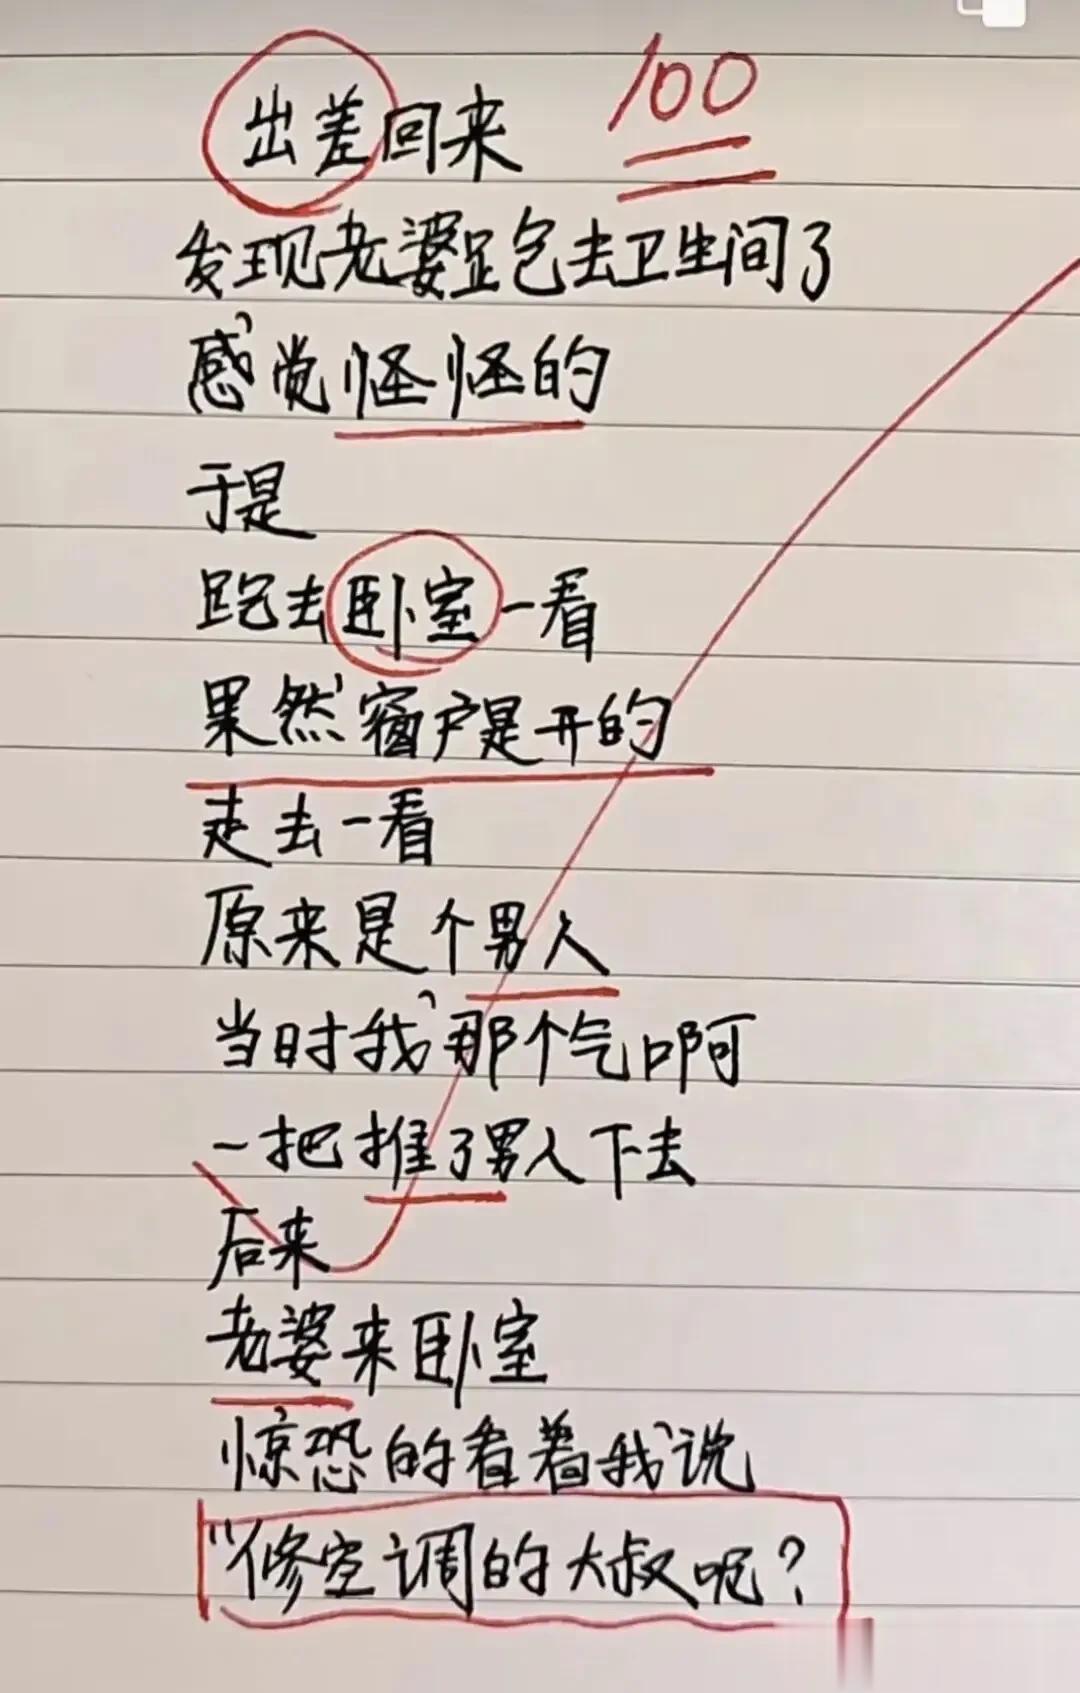 出差回来
100
发现老婆跑去卫生间了
感觉怪怪的
于是
跑去卧室一看
果然窗户是开的
走去一看
原来是个男人
当时我那个气啊
一把推了男人下去
后来
老婆来卧室
惊恐的看着我说
"修空调的大叔呢?